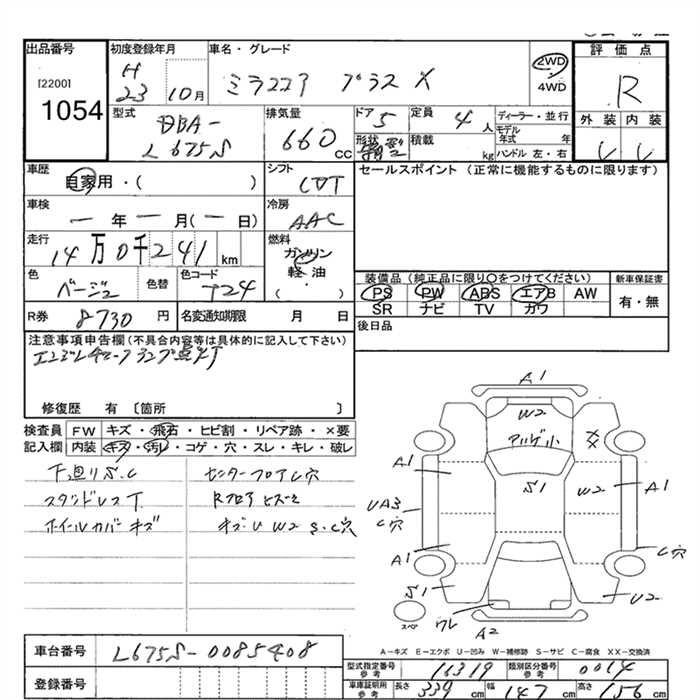 出品番号
[2200]
1054
初度登録年月
H
23 10月
車名・グレード
ミラココア プラス X
2WD
4WD
評価点
R
外装 内装
型式
DBA-
L675S
排気量
660 cc
ドア
5
定員
4人
形状
積載
kg
ディーラー・並行
モデル年式 年
ハンドル 左・右
車歴
自家用・( )
シフト
CVT
セールスポイント (正常に機能するものに限ります)
車検
ー年ー月(ー日)
冷房
AAC
走行
14万0千241km
燃料
ガソリン
軽油
( )
色
ベージュ
色替
色コード
T24
装備品(純正品に限り○をつけてください)
PS PW ABS エアB AW
SR ナビ TV カワ
新車保証書
有・無
R券
8730円
名変通知期限 月 日
後日品
注意事項申告欄(不具合内容等は具体的に記入して下さい)
エンジンチェックランプ点灯
修復歴 有 〔箇所 〕
検査員
記入欄
FW キズ・飛石・ヒビ割・リペア跡・×要
内装 キズ・汚レ・コゲ・穴・スレ・キレ・破レ
下廻りS.C
スタッドレスT
ホイールカバーキズ
センターフロアC穴
キズ・U W2 S.C穴
A1
W2
S1
A1
UA3
C穴
W2
A1
A1
C穴
S1
ワレ
U2
A2
スペア
A-キズ E-エクボ U-凹み W-補修跡 S-サビ C-腐食 XX-交換済
車台番号
L675S-0085408
登録番号
型式指定番号
参考
16319
類別区分番号
参考
0014
車庫証明用
参考
長さ 339cm
幅 147cm
高さ 156cm